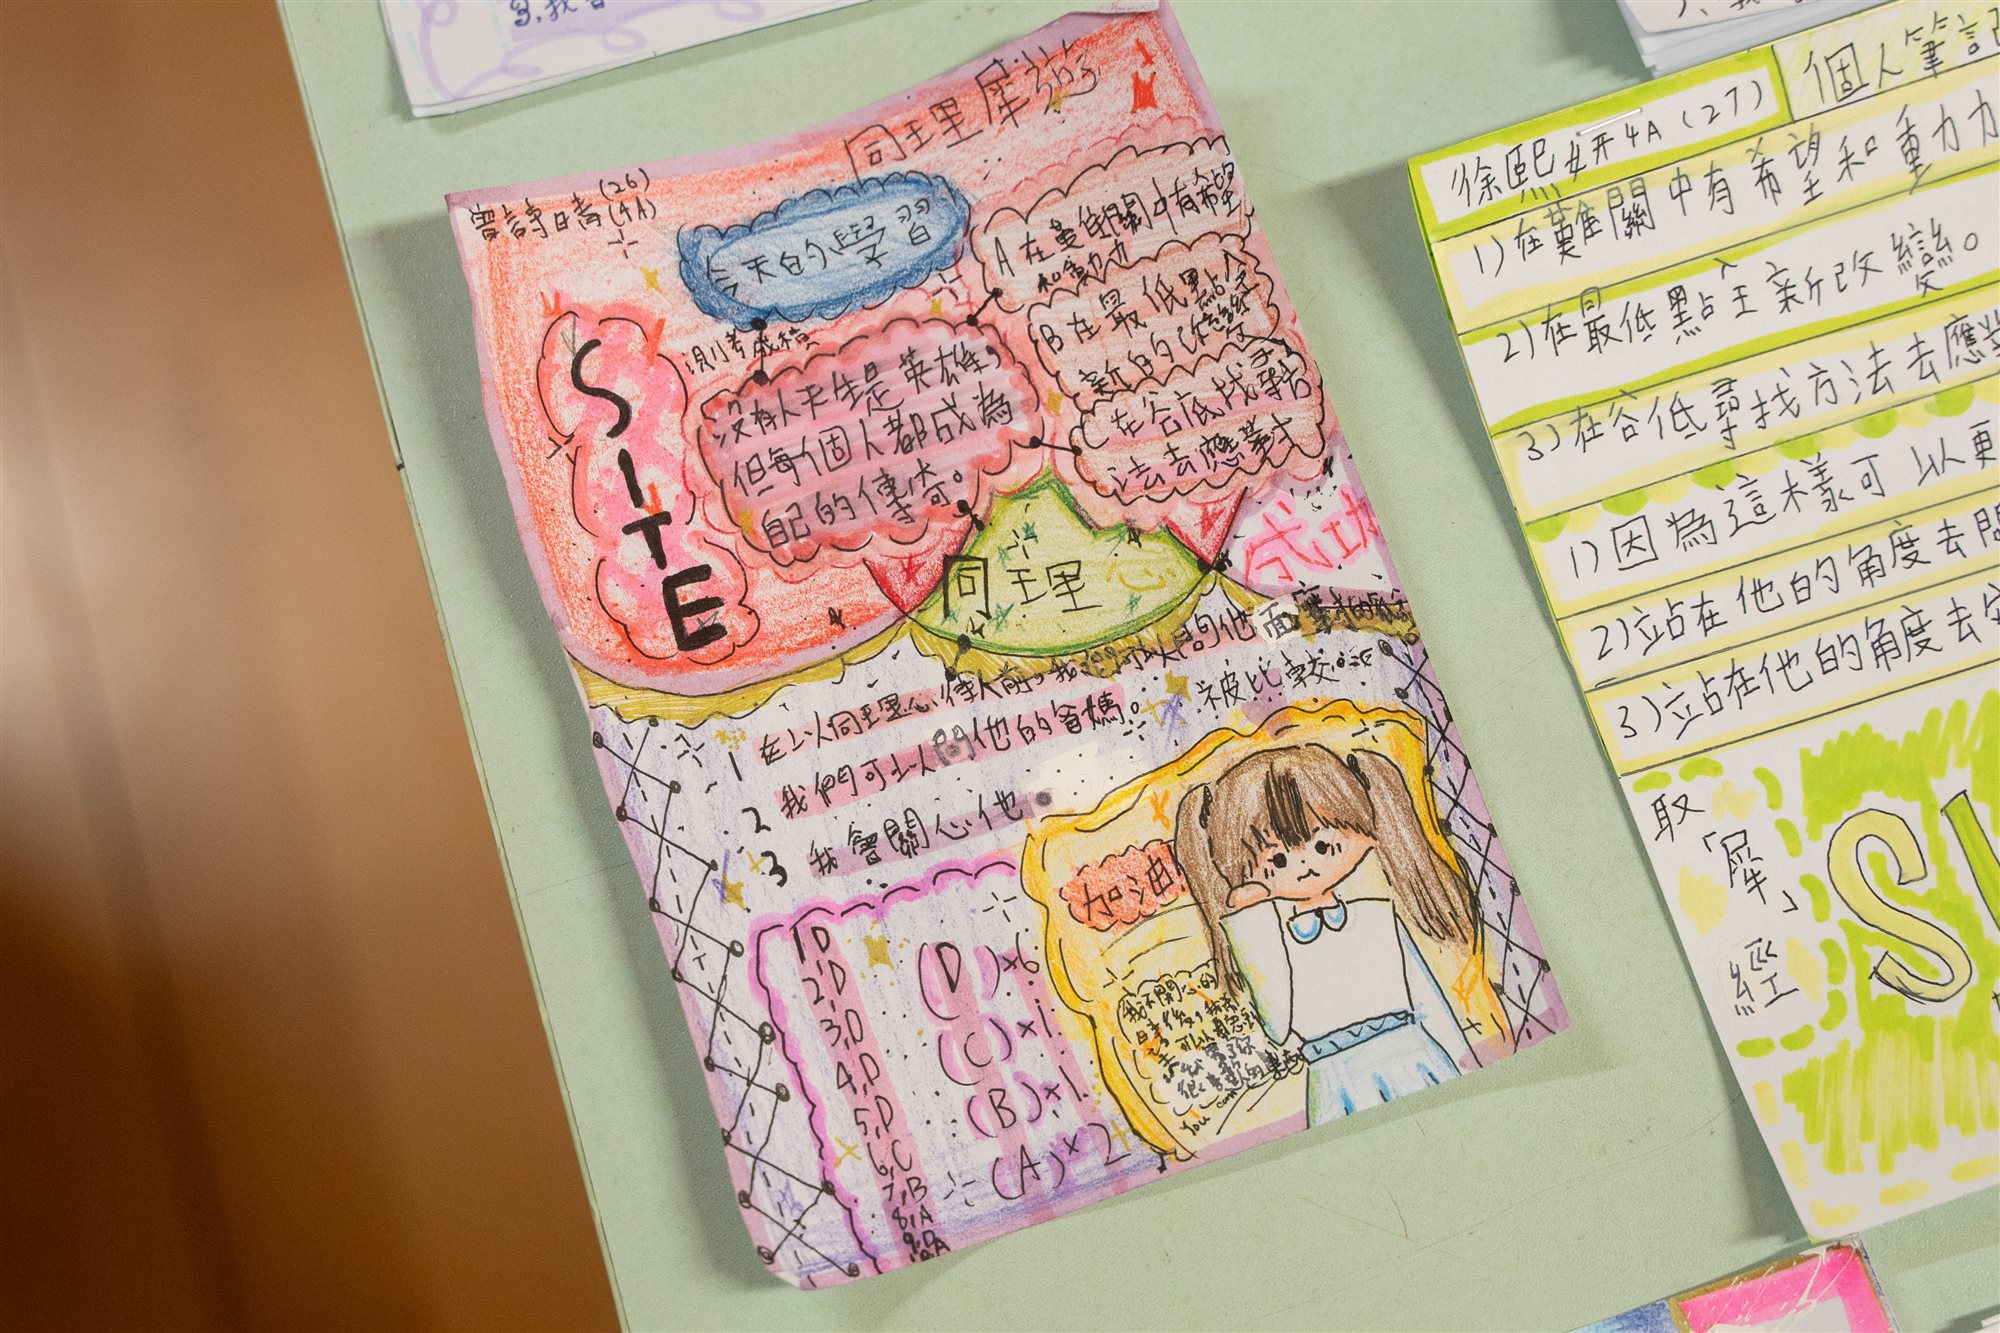 同理犀遊
曾詩晴(26)
(4A)
今天的學習
SITE
測考成積
沒有人天生是英雄,
但每個人都成為
自己的傳奇。
A在最低關中有希望
和動力
B在最低點
新的改變
C在谷底找尋
法去應對
同理心
成功
1 在以同理心待人前,我們可以問他面對的
被比較
2 我們可以問他的爸媽。
3 我會關心他
1D
2,D
3,D
4,D
5,D
6,C
7,B
8,A
9,D
10,A
(D)×6
(C)×1
(B)×1
(A)×2
加油!
我不開心的
時後,
You can
徐熙妍4A(27)
個人筆記
1)在難關中有希望和動力
2)在最低點主新改變。
3)在谷低尋找方法去應對
1)因為這樣可以更
2)站在他的角度去問
3)站在他的角度去安
取「犀」經
SI
3,我會